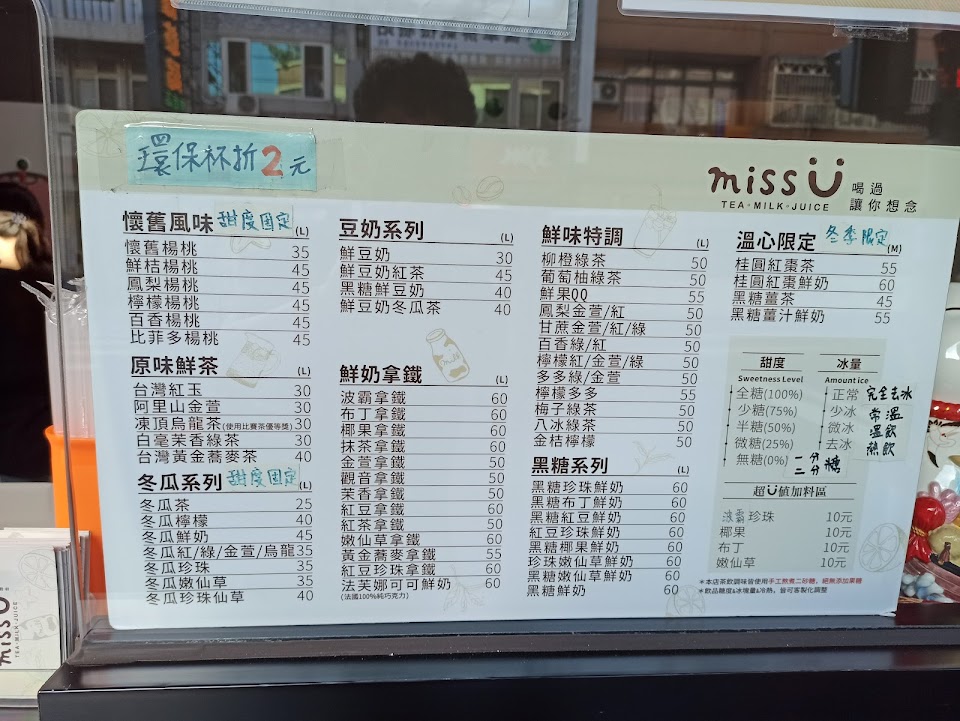 環保杯折2元
miss Ü
TEA•MILK•JUICE
喝過
讓你想念
懷舊風味 甜度固定 (L)
懷舊楊桃 35
鮮桔楊桃 45
鳳梨楊桃 45
檸檬楊桃 45
百香楊桃 45
比菲多楊桃 45
原味鮮茶 (L)
台灣紅玉 30
阿里山金萱 30
凍頂烏龍茶(使用比賽茶優等獎) 30
白毫茉香綠茶 30
台灣黃金蕎麥茶 40
冬瓜系列 甜度固定 (L)
冬瓜茶 25
冬瓜檸檬 40
冬瓜鮮奶 45
冬瓜紅/綠/金萱/烏龍 35
冬瓜珍珠 35
冬瓜嫩仙草 35
冬瓜珍珠仙草 40
豆奶系列 (L)
鮮豆奶 30
鮮豆奶紅茶 45
黑糖鮮豆奶 40
鮮豆奶冬瓜茶 40
鮮奶拿鐵 (L)
波霸拿鐵 60
布丁拿鐵 60
椰果拿鐵 60
抹茶拿鐵 60
金萱拿鐵 50
觀音拿鐵 50
茉香拿鐵 50
紅豆拿鐵 60
紅茶拿鐵 50
嫩仙草拿鐵 60
黃金蕎麥拿鐵 55
紅豆珍珠拿鐵 60
法芙娜可可鮮奶 60
(法國100%純巧克力)
鮮味特調 (L)
柳橙綠茶 50
葡萄柚綠茶 50
鮮果QQ 55
鳳梨金萱/紅 50
甘蔗金萱/紅/綠 50
百香綠/紅 50
檸檬紅/金萱/綠 50
多多綠/金萱 50
檸檬多多 55
梅子綠茶 50
八冰綠茶 50
金桔檸檬 50
黑糖系列 (L)
黑糖珍珠鮮奶 60
黑糖布丁鮮奶 60
黑糖紅豆鮮奶 60
紅豆珍珠鮮奶 60
黑糖椰果鮮奶 60
珍珠嫩仙草鮮奶 60
黑糖嫩仙草鮮奶 60
黑糖鮮奶 60
溫心限定 冬季限定 (M)
桂圓紅棗茶 55
桂圓紅棗鮮奶 60
黑糖薑茶 45
黑糖薑汁鮮奶 55
甜度
Sweetness Level
全糖(100%)
少糖(75%)
半糖(50%)
微糖(25%)
無糖(0%)
一分
二分 糖
冰量
Amount ice
正常
少冰
微冰
去冰
完全去冰
常溫
溫飲
熱飲
超Ü值加料區
波霸 珍珠 10元
椰果 10元
布丁 10元
嫩仙草 10元
*本店茶飲調味皆使用手工熬煮二砂糖，絕無添加果糖
*飲品糖度&冰塊量&冷熱，皆可客製化調整
miss Ü
TEA•MILK•JUICE